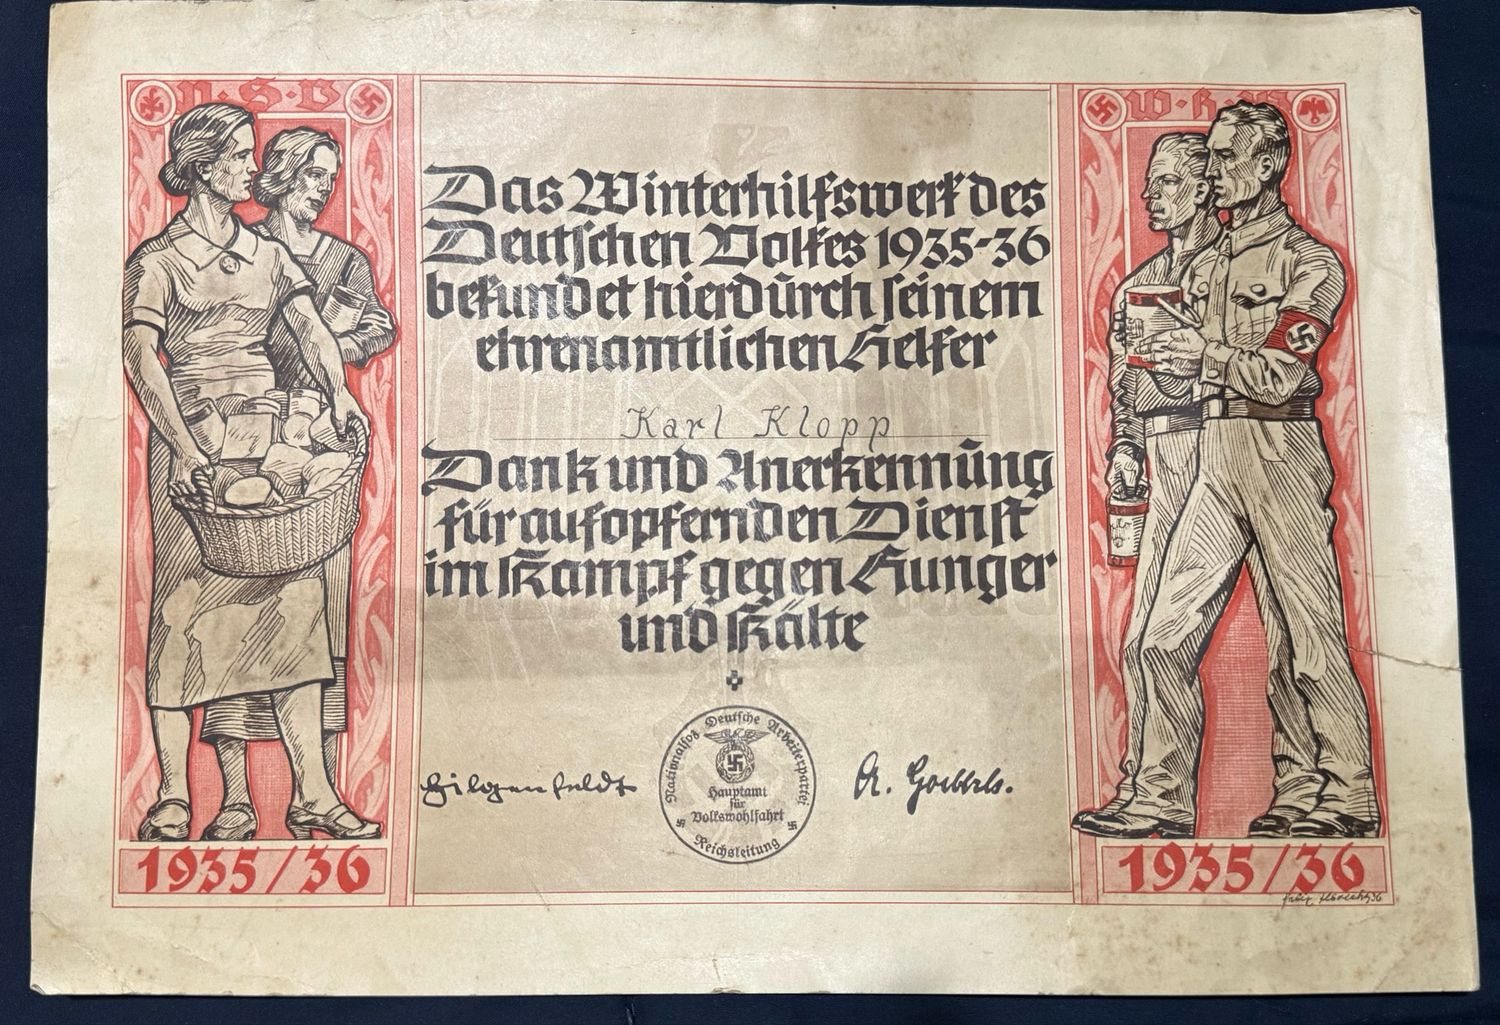 N·S·V
W·H·W
Das Winterhilfswerk des
Deutschen Volkes 1935-36
bekundet hierdurch seinem
ehrenamtlichen Helfer
Karl Klopp
Dank und Anerkennung
für aufopfernden Dienst
im Kampf gegen Hunger
und Kälte
Hilgenfeldt
Nationalsoz. Deutsche Arbeiterpartei
Hauptamt
für
Volkswohlfahrt
Reichsleitung
Goebbels.
1935/36
1935/36